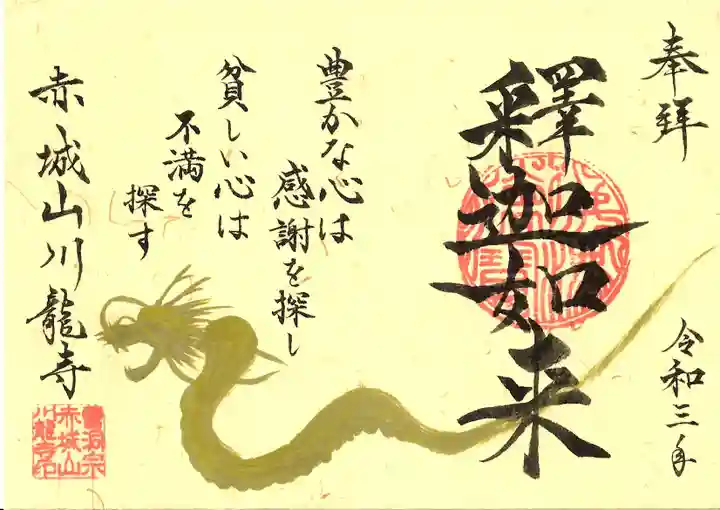 奉拝
釋迦如来
令和三年
豊かな心は
感謝を探し
貧しい心は
不満を
探す
赤城山川龍寺
曹洞宗
赤城山
川龍寺印